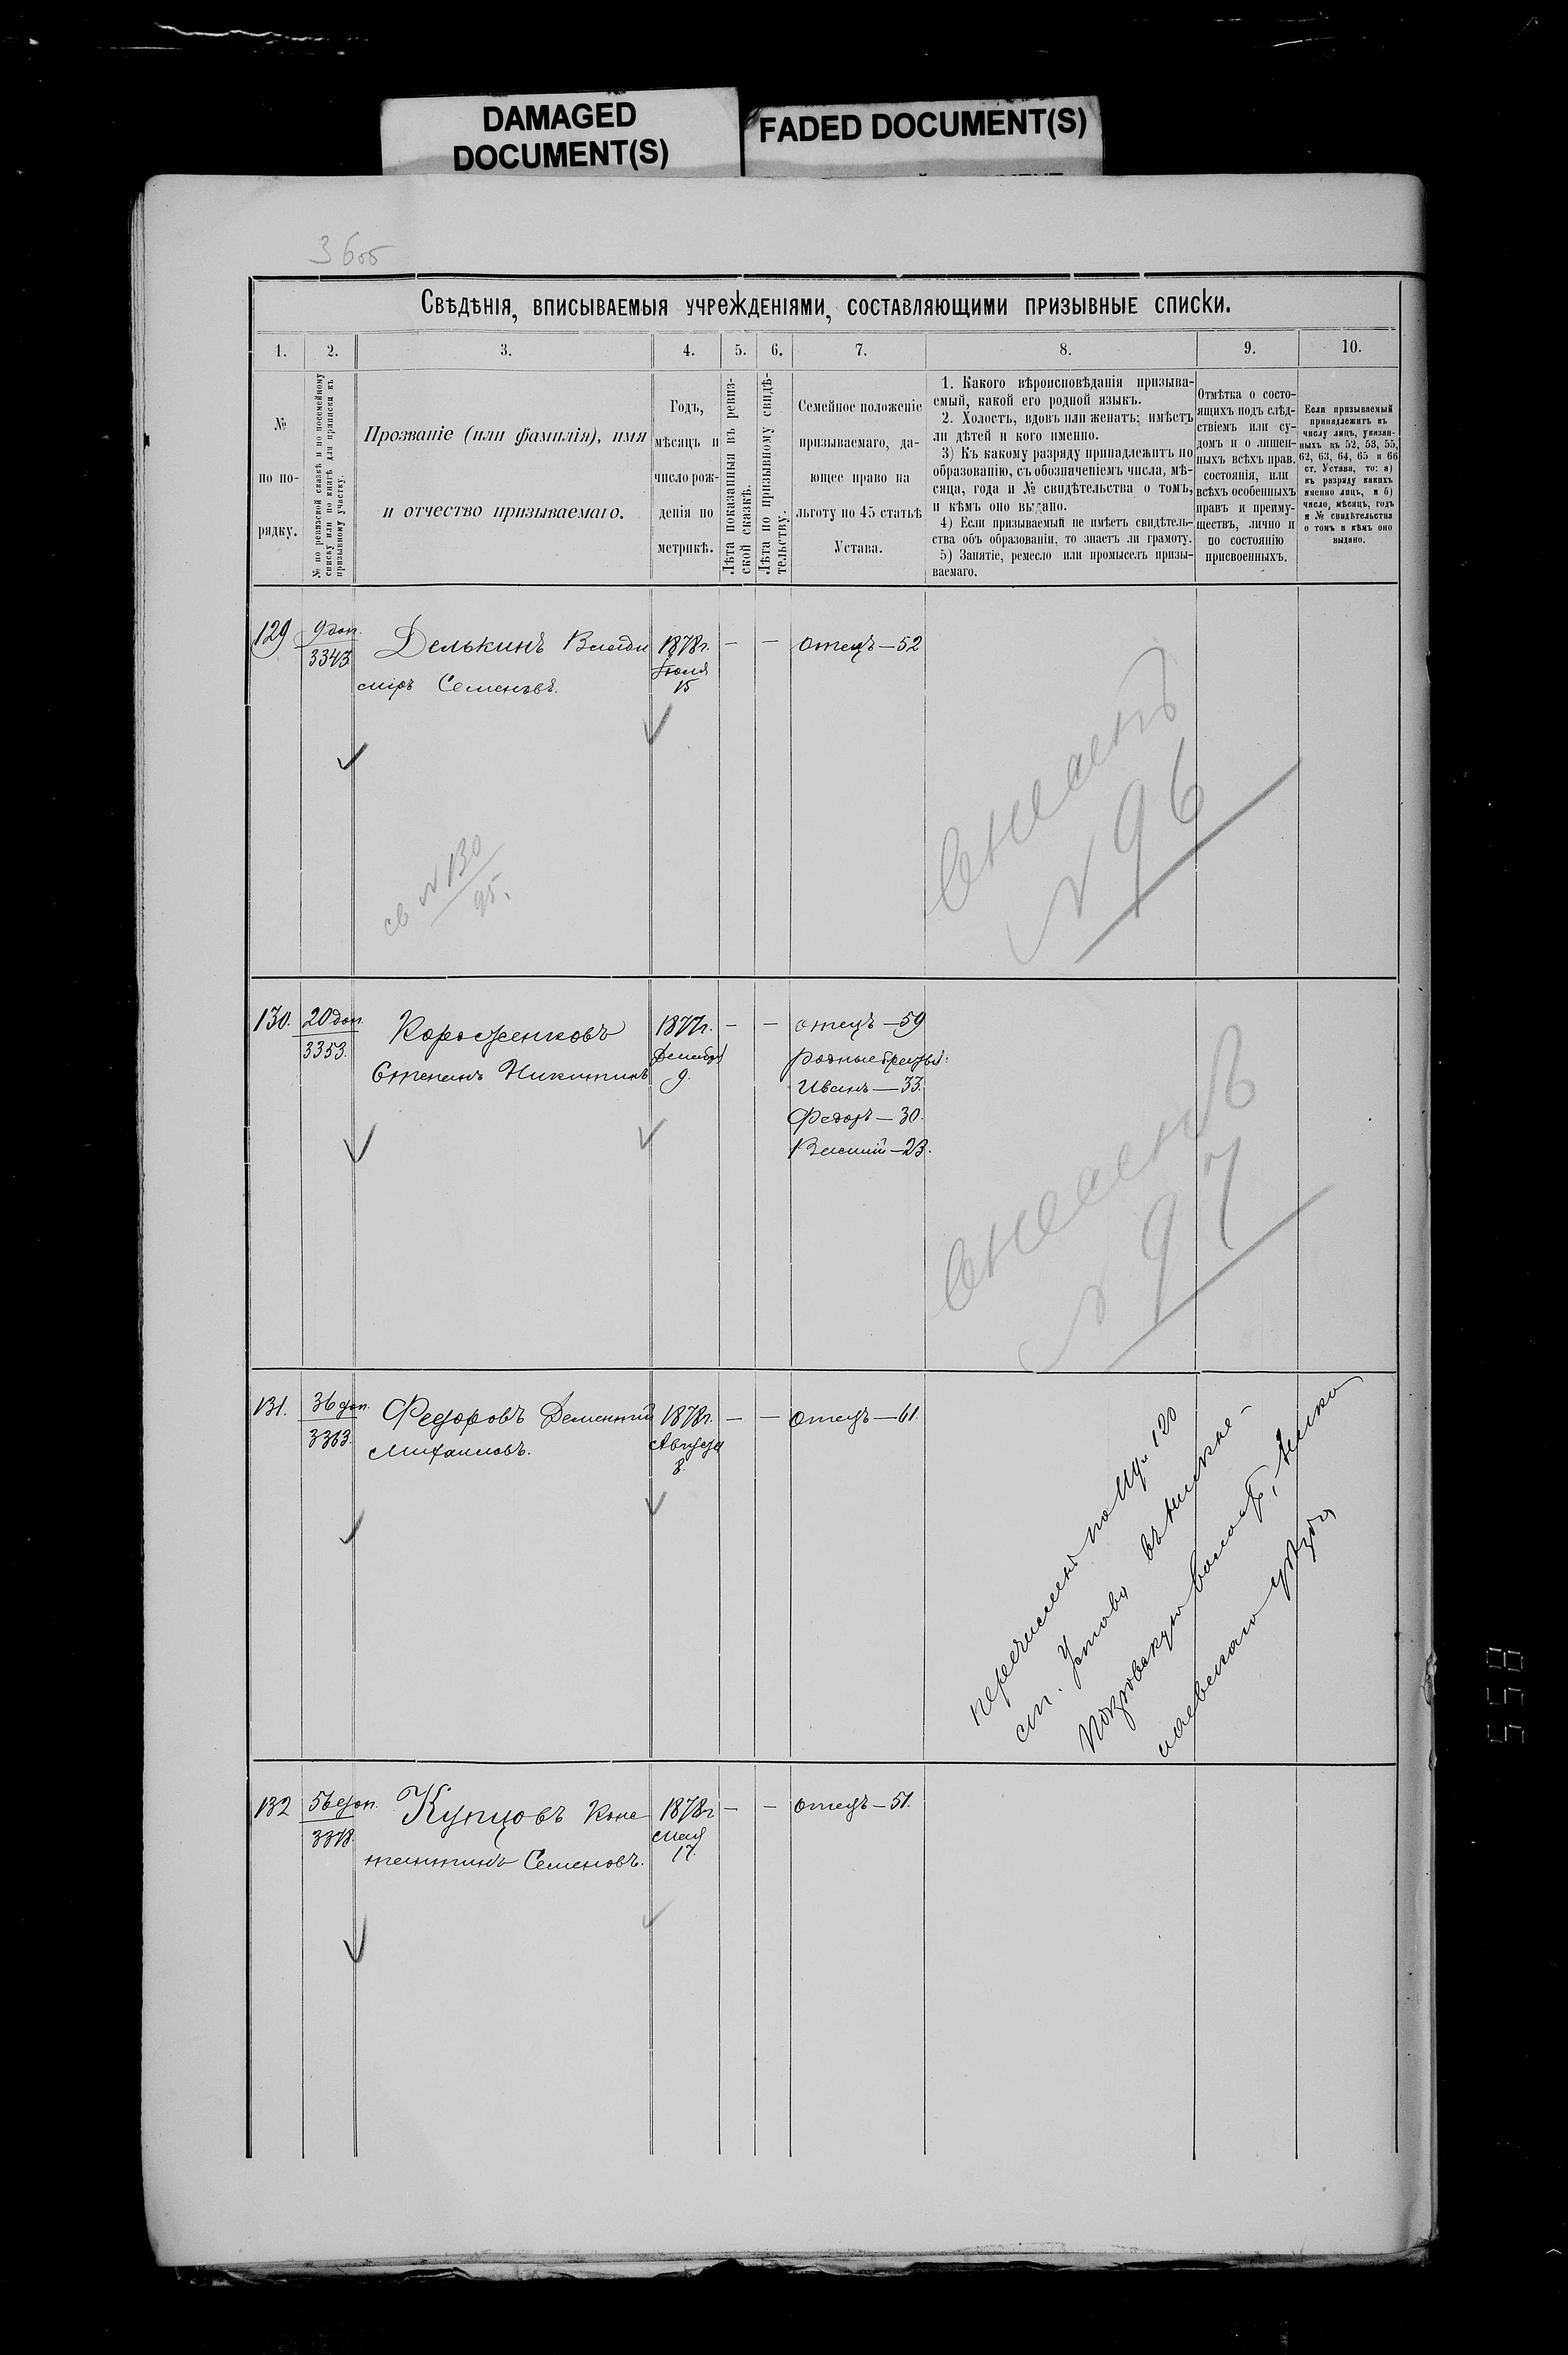 DAMAGED
DOCUMENT(S)
FADED DOCUMENT(S)
3 6об
Свѣдѣнія, вписываемыя учрежденіями, составляющими призывные списки.
1. 2. 3. 4. 5. 6. 7. 8. 9. 10.
№
по по-
рядку.
№ по ревизской сказкѣ и по посемейному
списку или по книгѣ для приписки къ
призывному участку.
Прозваніе (или фамилія), имя
и отчество призываемаго.
Годъ,
мѣсяцъ и
число рож-
денія по
метрикѣ.
Лѣта показанныя въ ревиз-
ской сказкѣ.
Лѣта по призывному свидѣ-
тельству.
Семейное положеніе
призываемаго, да-
ющее право на
льготу по 45 статьѣ
Устава.
1. Какого вѣроисповѣданія призыва-
емый, какой его родной языкъ.
2. Холостъ, вдовъ или женатъ; имѣетъ
ли дѣтей и кого именно.
3) Къ какому разряду принадлежитъ по
образованію, съ обозначеніемъ числа, мѣ-
сяца, года и № свидѣтельства о томъ,
и кѣмъ оно выдано.
4) Если призываемый не имѣетъ свидѣтель-
ства объ образованіи, то знаетъ ли грамоту.
5) Занятіе, ремесло или промыселъ призы-
ваемаго.
Отмѣтка о состо-
ящихъ подъ слѣд-
ствіемъ или су-
домъ и о лишен-
ныхъ всѣхъ прав.
состоянія, или
всѣхъ особенныхъ
правъ и преиму-
ществъ, лично и
по состоянію
присвоенныхъ.
Если призываемый
принадлежитъ къ
числу лицъ, указан-
ныхъ въ 52, 53, 55,
62, 63, 64, 65 и 66
ст. Устава, то: а)
къ разряду какихъ
именно лицъ, и б)
число, мѣсяцъ, годъ
и № свидѣтельства
о томъ и кѣмъ оно
выдано.
129 9 доп. Делькинъ Влади 1878г. — — Отецъ—52
3343 міръ Семеновъ. Іюля
15
внесенъ
№ 96
св № 130
95.
130. 20 доп. 1877г. — — отецъ—59
3353. Степанъ Никитинъ Декабря
9.
родные братья:
Иванъ—33.
Федоръ—30.
Василій—23.
внесенъ
№ 97
131. 36 доп. Федоровъ Дементій 1878г. — — Отецъ—61.
3363. Михаиловъ. Августа
8.
перечисленъ по 120
ст. Устава въ
Покровскую волость, Нико
лаевскаго уѣзда
132 56 доп. Купцовъ Конс 1878г — — Отецъ—51.
3378. тантинъ Семеновъ. Мая
17.
558